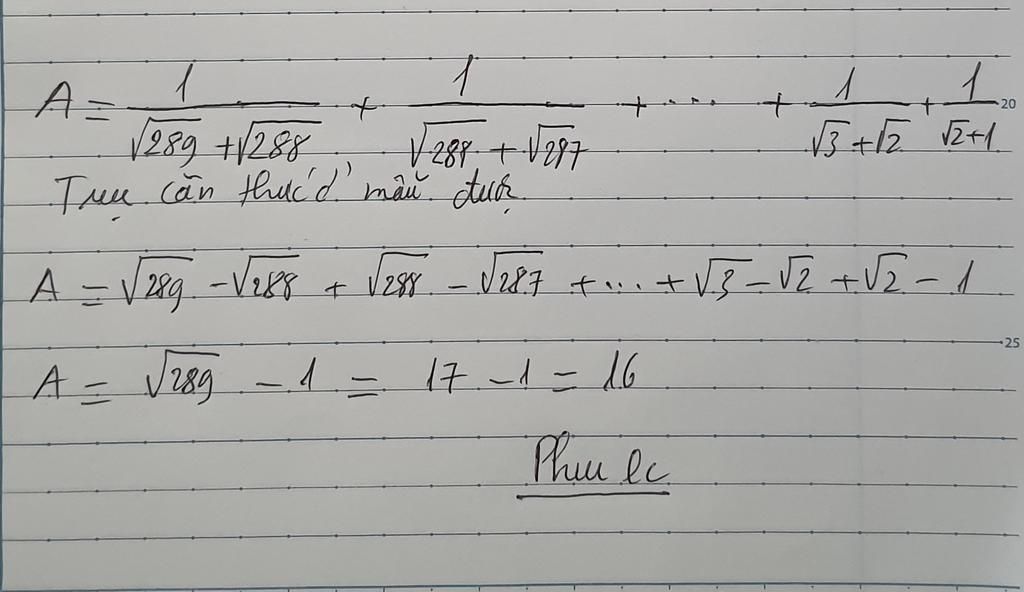 A = 1/(√289 + √288) + 1/(√288 + √287) + ... + 1/(√3 + √2) + 1/(√2 + 1)
20
Trục căn thức ở mẫu được
A = √289 - √288 + √288 - √287 + ... + √3 - √2 + √2 - 1
25
A = √289 - 1 = 17 - 1 = 16